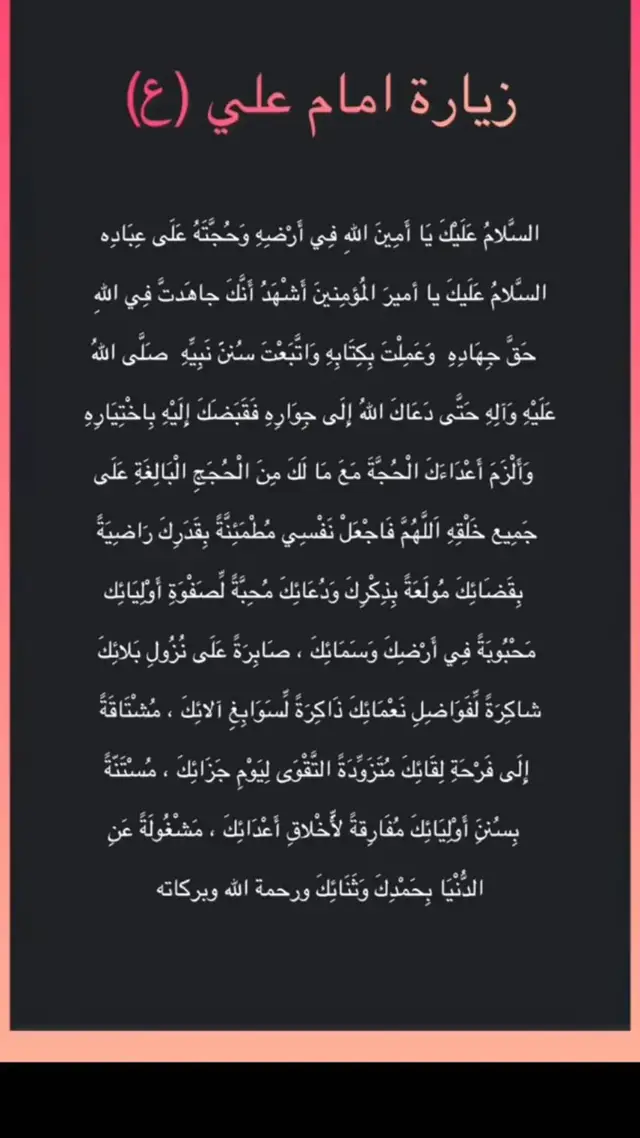 زيارة امام علي (ع)
السَّلامُ عَلَيْكَ يَا أَمِينَ اللهِ فِي أَرْضِهِ وَحُجَّتَهُ عَلَى عِبَادِه
السَّلامُ عَلَيكَ يا أميرَ المُؤمِنينَ أَشْهَدُ أَنَّكَ جاهَدتَّ فِي اللهِ
حَقَّ جِهَادِهِ وَعَمِلْتَ بِكِتَابِهِ وَاتَّبَعْتَ سُننَ نَبِيِّهِ صَلَّى اللهُ
عَلَيْهِ وَآلِهِ حَتَّى دَعَاكَ اللهُ إِلَى جِوَارِهِ فَقَبَضَكَ إِلَيْهِ بِاخْتِيَارِهِ
وَأَلْزَمَ أَعْدَاءَكَ الْحُجَّةَ مَعَ مَا لَكَ مِنَ الْحُجَجِ الْبَالِغَةِ عَلَى
جَمِيع خَلْقِهِ اَللَّهُمَّ فَاجْعَلْ نَفْسِي مُطْمَئِنَّةً بِقَدَرِكَ رَاضِيَةً
بِقَضَائِكَ مُولَعَةً بِذِكْرِكَ وَدُعَائِكَ مُحِبَّةً لِّصَفْوَةِ أَوْلِيَائِك
مَحْبُوبَةً فِي أَرْضِكَ وَسَمَائِكَ ، صَابِرَةً عَلَى نُزُولِ بَلائِكَ
شاكِرَةً لِّفَوَاضِلِ نَعْمَائِكَ ذَاكِرَةً لِّسَوَابِغِ آلائِكَ ، مُشْتَاقَةً
إِلَى فَرْحَةِ لِقَائِكَ مُتَزَوِّدَةً التَّقْوَى لِيَوْمِ جَزَائِكَ ، مُسْتَنّةً
بِسُننِ أَوْلِيَائِكَ مُفَارِقةً لأَّخْلاقِ أَعْدَائِكَ ، مَشْغُولَةً عَنِ
الدُّنْيَا بِحَمْدِكَ وَثَنَائِكَ ورحمة الله وبركاته